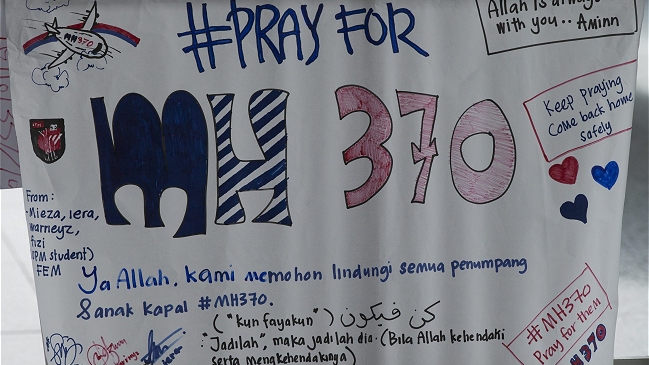 #PRAY FOR
MH370
Allah is always
with you.. Aminn
MH 370
Keep praying
Come back home
safely
From :
- Mieza, iera,
warneyz,
fizi
UPM student)
FEM
Ya Allah, kami memohon lindungi semua penumpang
& anak kapal #MH370.
("Kun fayakun") كن فيكون
"Jadilah", maka jadilah dia. (Bila Allah kehendaki
serta mengkehendaknya)
#MH370
Pray for them